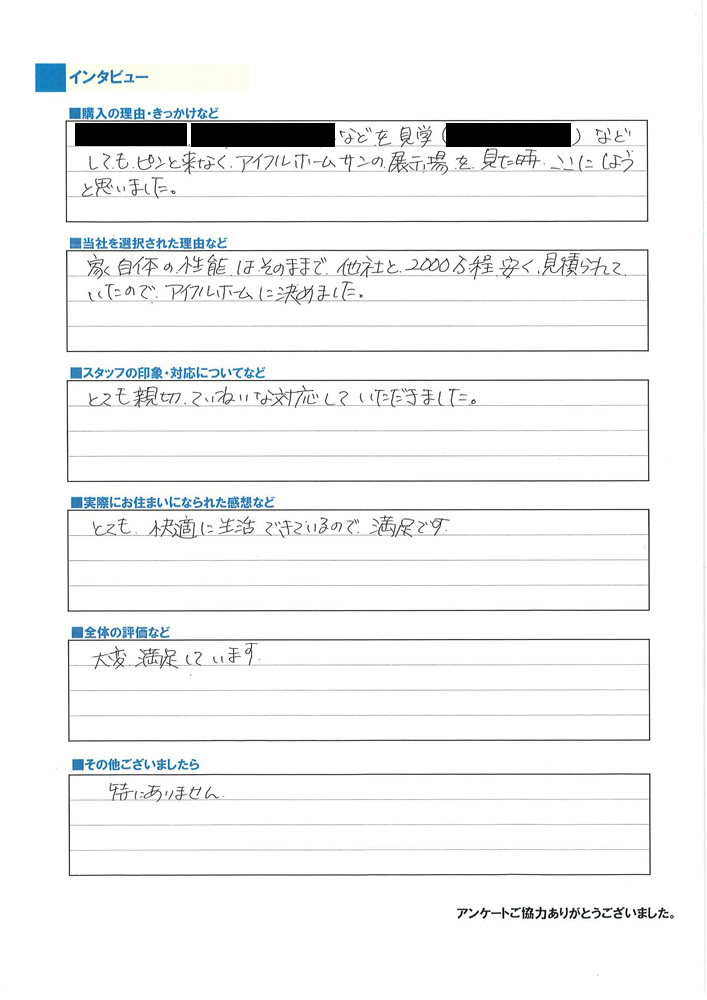 インタビュー
■購入の理由・きっかけなど
などを見学( ) など
しても、ピンと来なく、アイフルホームサンの展示場を見た時、ここにしよう
と思いました。
■当社を選択された理由など
家自体の性能はそのままで、他社と、2000万程安く、見積られて
いたので、アイフルホームに決めました。
■スタッフの印象・対応についてなど
とても親切、ていねいな対応していただきました。
■実際にお住まいになられた感想など
とても、快適に生活できているので、満足です。
■全体の評価など
大変、満足しています。
■その他ございましたら
特にありません。
アンケートご協力ありがとうございました。